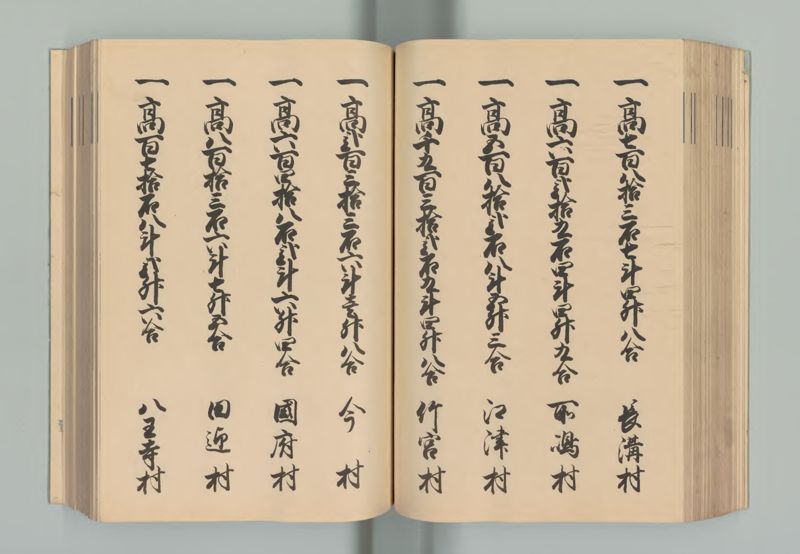 一高七百八拾三石七斗四升八合 長溝村
一高六百弐拾九石四斗四升九合 所島村
一高五百八拾弐石八斗五升三合 江津村
一高千九百三拾弐石九斗四升八合 竹宮村
一高弐百三拾三石六斗壱升八合 今村
一高六百四拾八石弐斗六升四合 國府村
一高八百拾三石六斗七升五合 田迎村
一高百七拾石八斗弐升六合 八王寺村